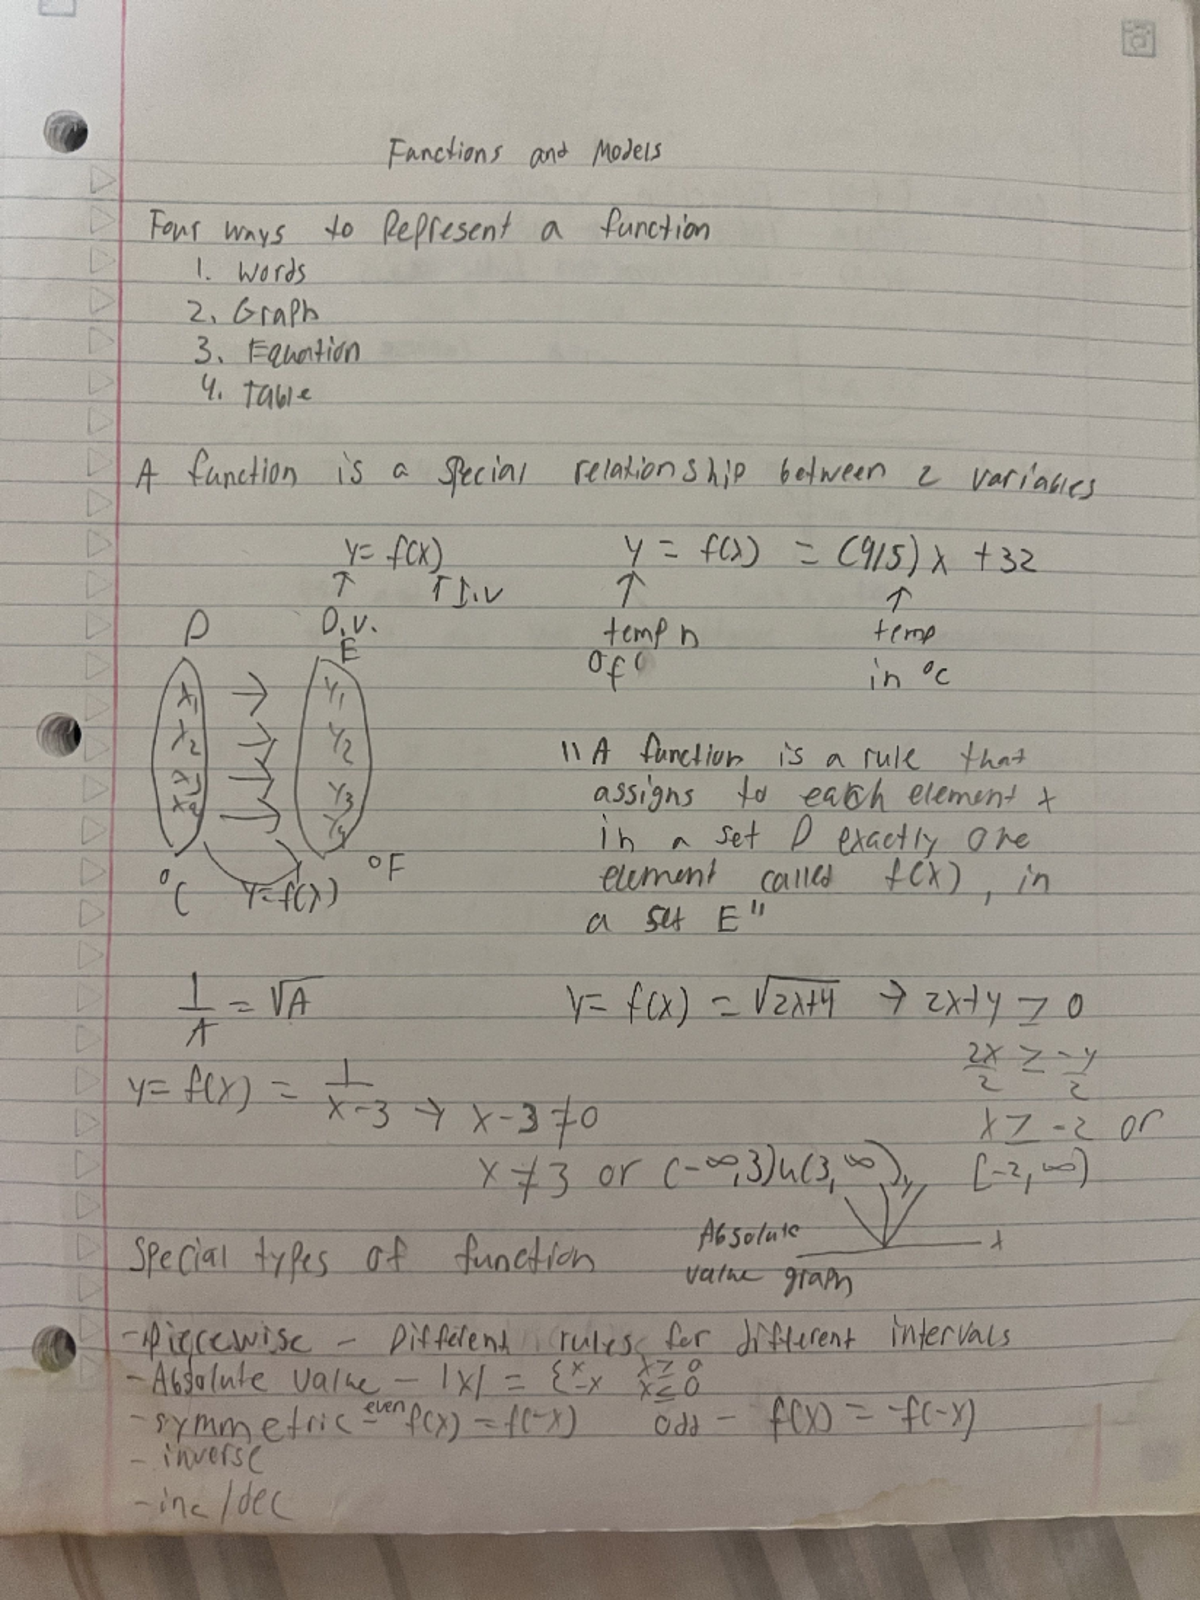 Functions and Models
Four ways to Represent a function
1. Words
2. Graph
3. Equation
4. Table
A function is a special relationship between 2 variables
y = f(x)
↑ ↑ I.V
D.V.
y = f(x) = (9/5)x + 32
↑ ↑
temp n temp
°f in °C
D E
x1 → y1
x2 → y2
x3 → y3
x4 → y4
°C y=f(x) °F
"A function is a rule that
assigns to each element x
in a set D exactly one
element called f(x), in
a set E"
1/A = √A
y = f(x) = √2x+4 → 2x+4 ≥ 0
2x/2 ≥ -4/2
x ≥ -2 or
[-2, ∞)
y = f(x) = 1/x-3 → x-3 ≠ 0
x ≠ 3 or (-∞,3)u(3,∞)
Absolute
value graph
y
x
Special types of function
-Piecewise - Different rules for different intervals
-Absolute value - |x| = {x x ≥ 0
-x x ≤ 0
-symmetric - even f(x) = f(-x) odd - f(x) = -f(-x)
- inverse
- inc/dec